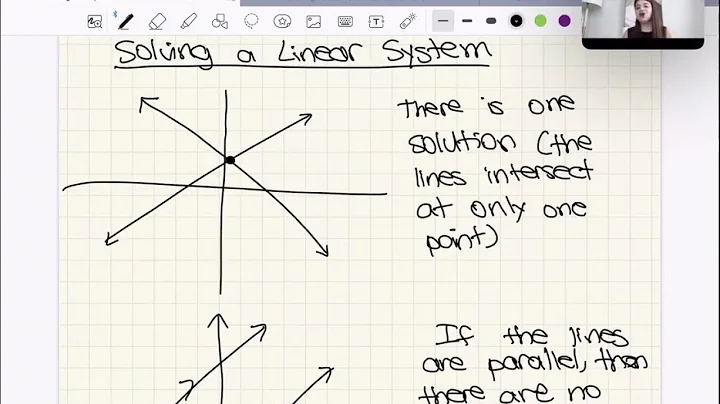 Solving a Linear System
There is one
solution (the
lines intersect
at only one
point)
If the lines
are parallel, then
there are no